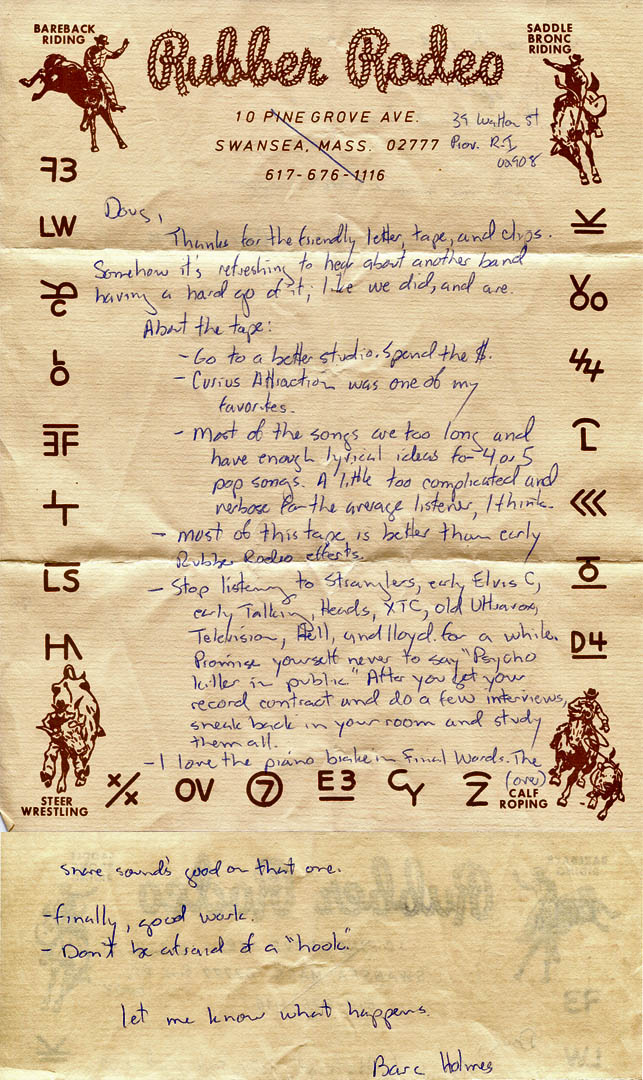 BAREBACK
RIDING
Rubber Rodeo
SADDLE
BRONC
RIDING
10 PINE GROVE AVE.
SWANSEA, MASS. 02777
617-676-1116
39 Walton St
Prov. R.I
02908
Doug,
Thanks for the friendly letter, tape, and clips.
Somehow it's refreshing to hear about another band
having a hard go of it; like we did, and are.
About the tape:
- Go to a better studio. Spend the $.
- Curius Attraction was one of my
favorites.
- Most of the songs are too long and
have enough lyrical ideas for 4 or 5
pop songs. A little too complicated and
verbose for the average listener, I think.
- most of this tape is better than early
Rubber Rodeo efforts.
- Stop listening to Stranglers, early Elvis C,
early Talking Heads, XTC, old Ultravox,
Television, Hell, and lloyd for a while.
Promise yourself never to say "Psycho
killer in public." After you get your
record contract and do a few interviews,
sneak back in your room and study
them all.
- I love the piano brake in Final Words. The
(over)
LW
LS
D4
OV
7
E3
STEER
WRESTLING
CALF
ROPING
snare sounds good on that one.
- finally, good work.
- Don't be afraid of a "hook."
let me know what happens.
Barc Holmes